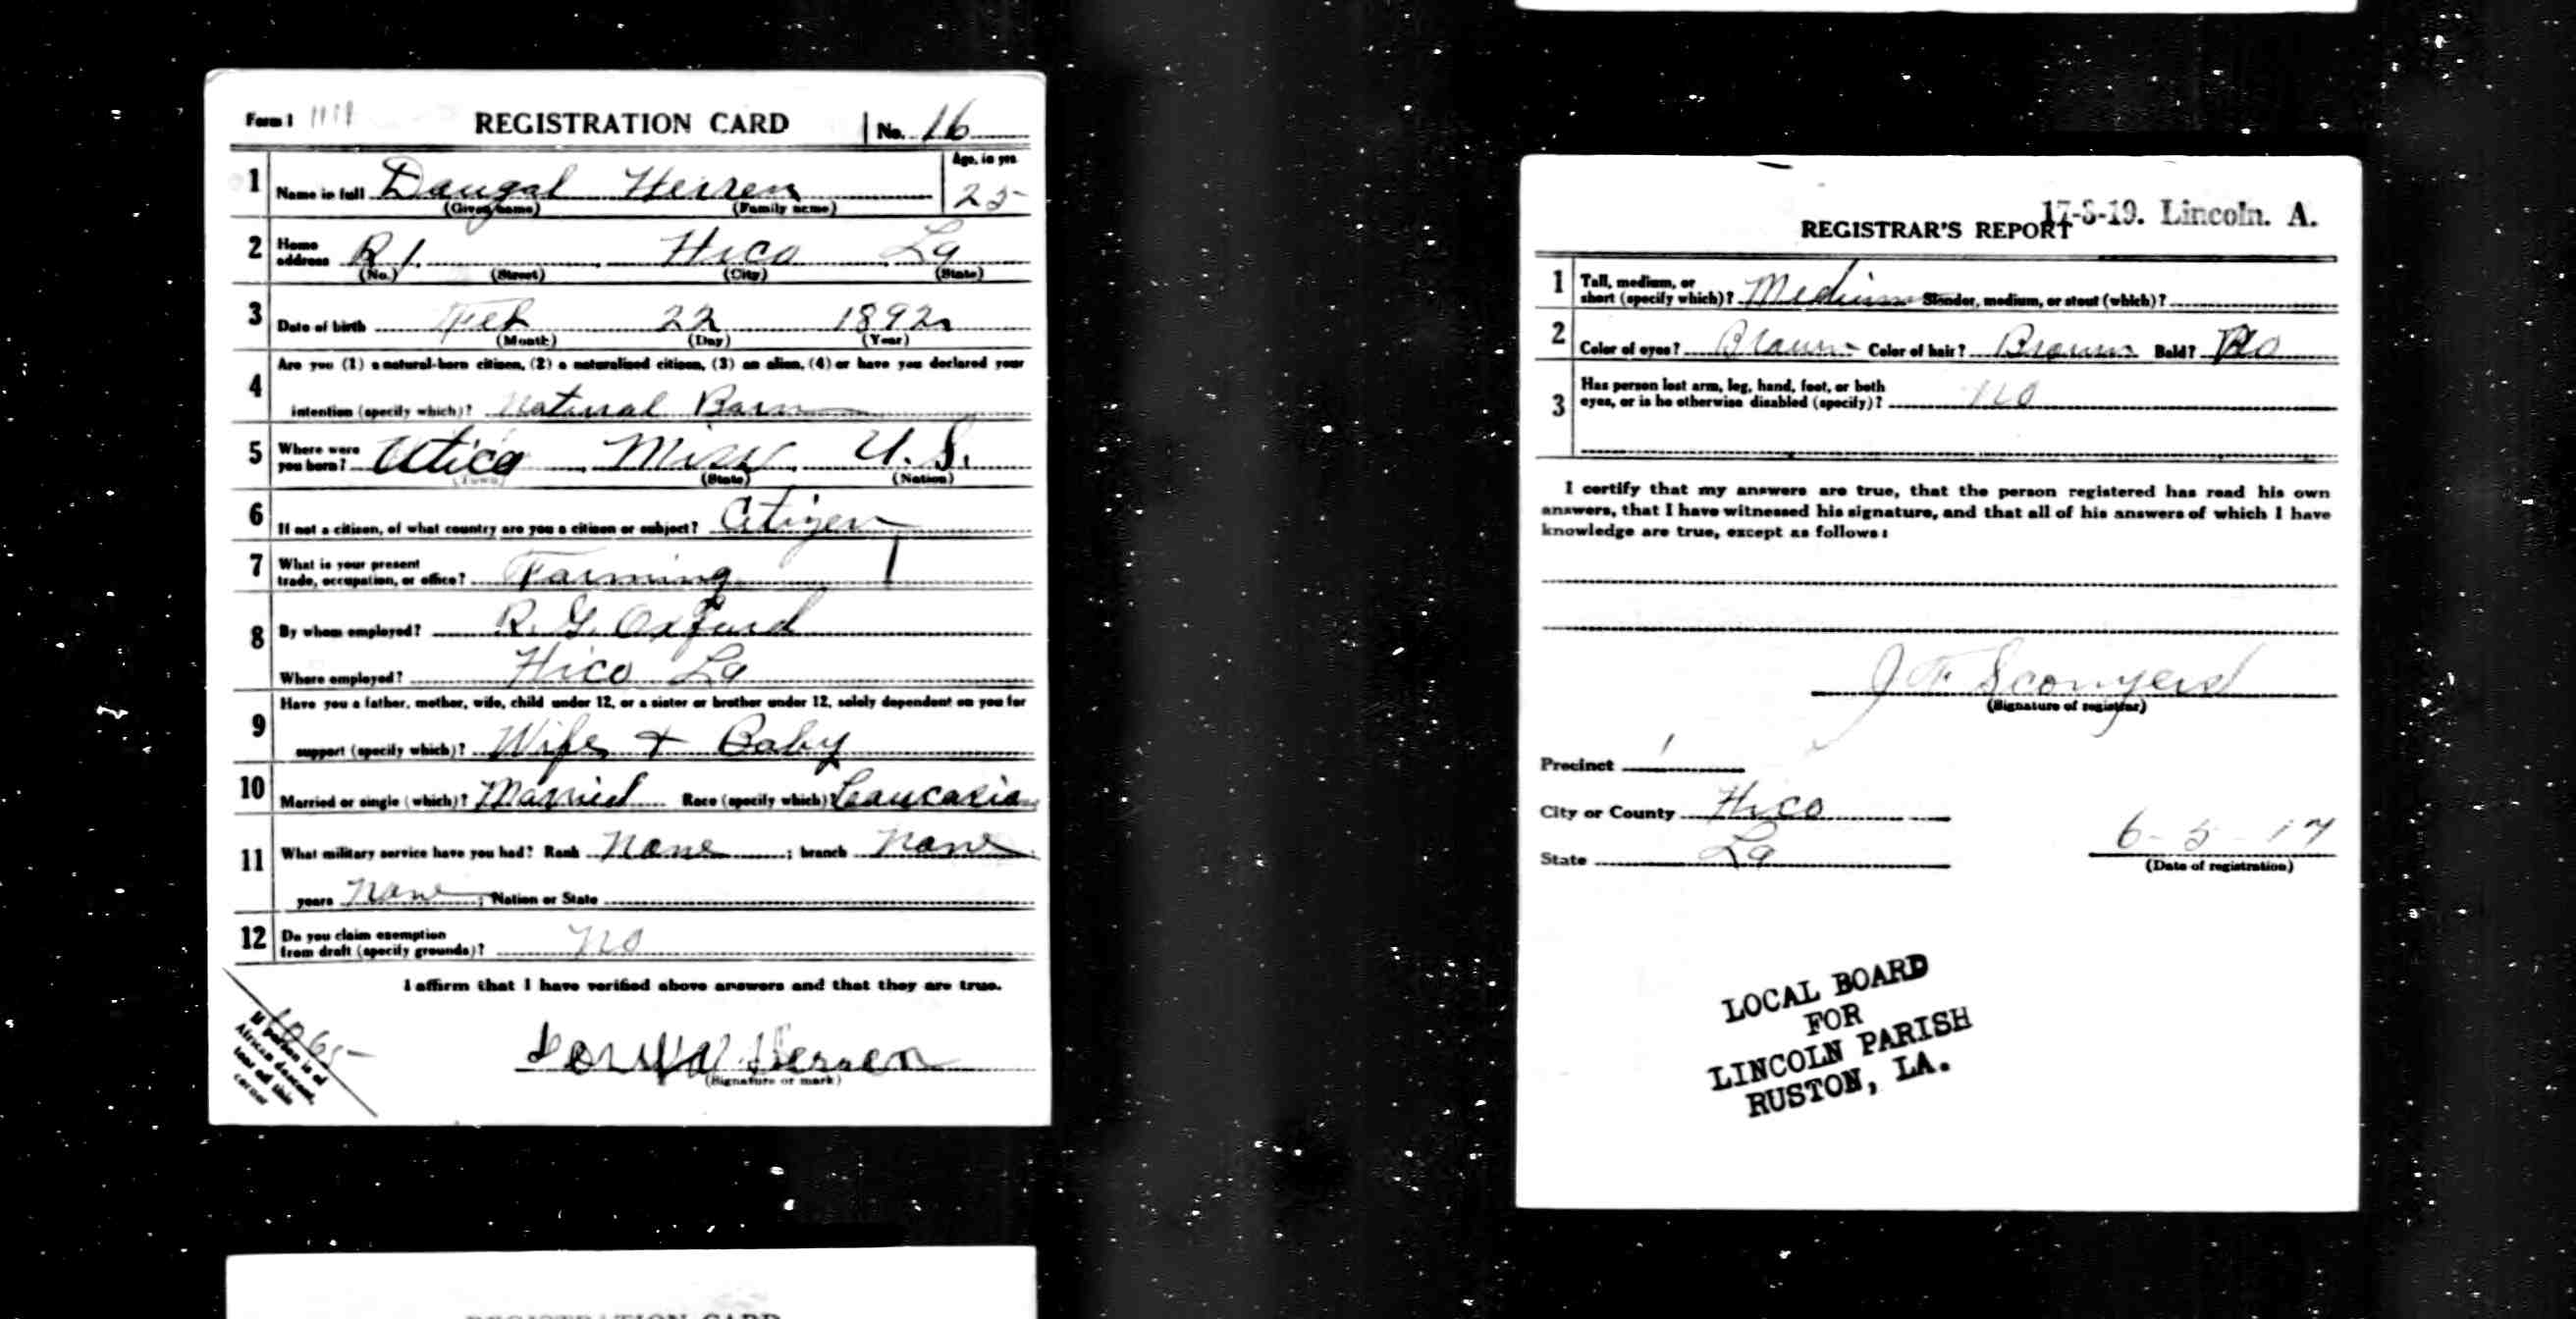 Form 1 1111 REGISTRATION CARD No. 16
1 Name in full Dougal Herren Age, in yrs 25
(Given name) (Family name)
2 Home address R 1. Hico La
(No.) (Street) (City) (State)
3 Date of birth Feb 22 1892
(Month) (Day) (Year)
Are you (1) a natural-born citizen, (2) a naturalized citizen, (3) an alien, (4) or have you declared your
4 intention (specify which)? Natural Born
5 Where were you born? Utica Miss U.S.
(Town) (State) (Nation)
6 If not a citizen, of what country are you a citizen or subject? Citizen
7 What is your present
trade, occupation, or office? Farming
8 By whom employed? R. G. Oxford
Where employed? Hico La
Have you a father, mother, wife, child under 12, or a sister or brother under 12, solely dependent on you for
9 support (specify which)? Wife + Baby
10 Married or single (which)? Married Race (specify which)? Caucasian
11 What military service have you had? Rank None ; branch None
years None ; Nation or State
12 Do you claim exemption
from draft (specify grounds)? No
I affirm that I have verified above answers and that they are true.
Herren
(Signature or mark)
If person is of
African descent,
tear off this
corner
REGISTRATION CARD
17-3-19. Lincoln. A.
REGISTRAR'S REPORT
1 Tall, medium, or
short (specify which)? Medium Slender, medium, or stout (which)?
2 Color of eyes? Brown Color of hair? Brown Bald? No
3 Has person lost arm, leg, hand, foot, or both
eyes, or is he otherwise disabled (specify)? No
I certify that my answers are true, that the person registered has read his own
answers, that I have witnessed his signature, and that all of his answers of which I have
knowledge are true, except as follows:
J F Sconyers
(Signature of registrar)
Precinct 1
City or County Hico
State La
6-5-17
(Date of registration)
LOCAL BOARD
FOR
LINCOLN PARISH
RUSTON, LA.